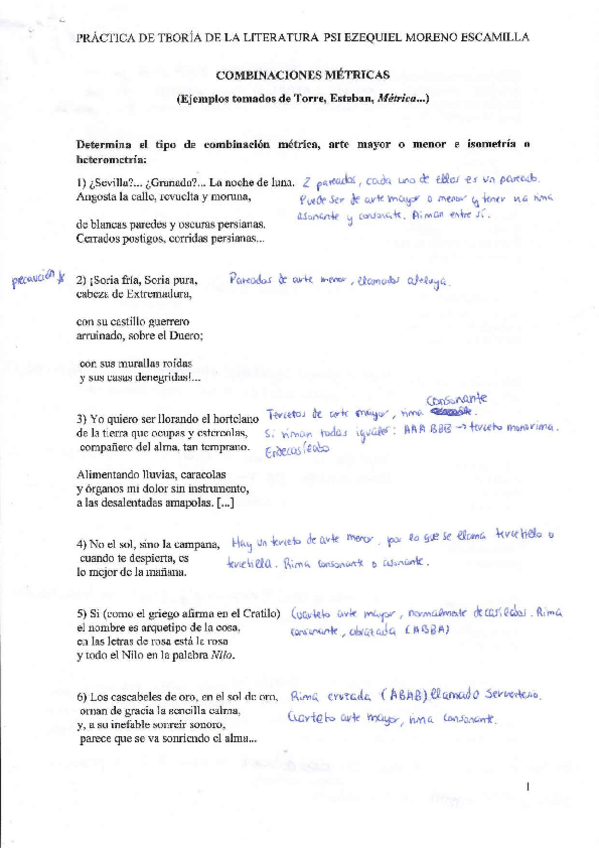 PRÁCTICA DE TEORÍA DE LA LITERATURA PSI EZEQUIEL MORENO ESCAMILLA
COMBINACIONES MÉTRICAS
(Ejemplos tomados de Torre, Esteban, Métrica...)
Determina el tipo de combinación métrica, arte mayor o menor e isometría o
heterometría:
1) ¿Sevilla?... ¿Granada?... La noche de luna. 2 pareados, cada uno de ellos es un pareado.
Angosta la calle, revuelta y moruna, Puede ser de arte mayor o menor y tener una rima
asonante y consonante. Riman entre sí.
de blancas paredes y oscuras persianas.
Cerrados postigos, corridas persianas...
precaución
2) ¡Soria fría, Soria pura, Pareados de arte menor, llamados aleluya.
cabeza de Extremadura,
con su castillo guerrero
arruinado, sobre el Duero;
con sus murallas roídas
y sus casas denegridas!...
consonante
3) Yo quiero ser llorando el hortelano Tercetos de arte mayor, rima
de la tierra que ocupas y estercolas, Si riman todas iguales: AAA BBB → terceto monorrima.
compañero del alma, tan temprano. Endecasílabo
Alimentando lluvias, caracolas
y órganos mi dolor sin instrumento,
a las desalentadas amapolas. [...]
4) No el sol, sino la campana, Hay un terceto de arte menor, por lo que se llama tercetillo o
cuando te despierta, es tercetilla. Rima consonante o asonante.
lo mejor de la mañana.
5) Si (como el griego afirma en el Cratilo) Cuarteto arte mayor, normalmente decasílabos. Rima
el nombre es arquetipo de la cosa, consonante, abrazada (ABBA)
en las letras de rosa está la rosa
y todo el Nilo en la palabra Nilo.
6) Los cascabeles de oro, en el sol de oro, Rima cruzada (ABAB) llamado Serventesio.
ornan de gracia la sencilla calma, Cuarteto arte mayor, rima consonante.
y, a su inefable sonreír sonoro,
parece que se va sonriendo el alma...
1